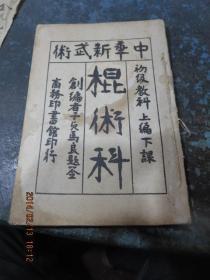 中華新武術
初級教科 上編下課
棍術科
創編者子貞馬良題签
商務印書館印行
2014/02/13 18:12